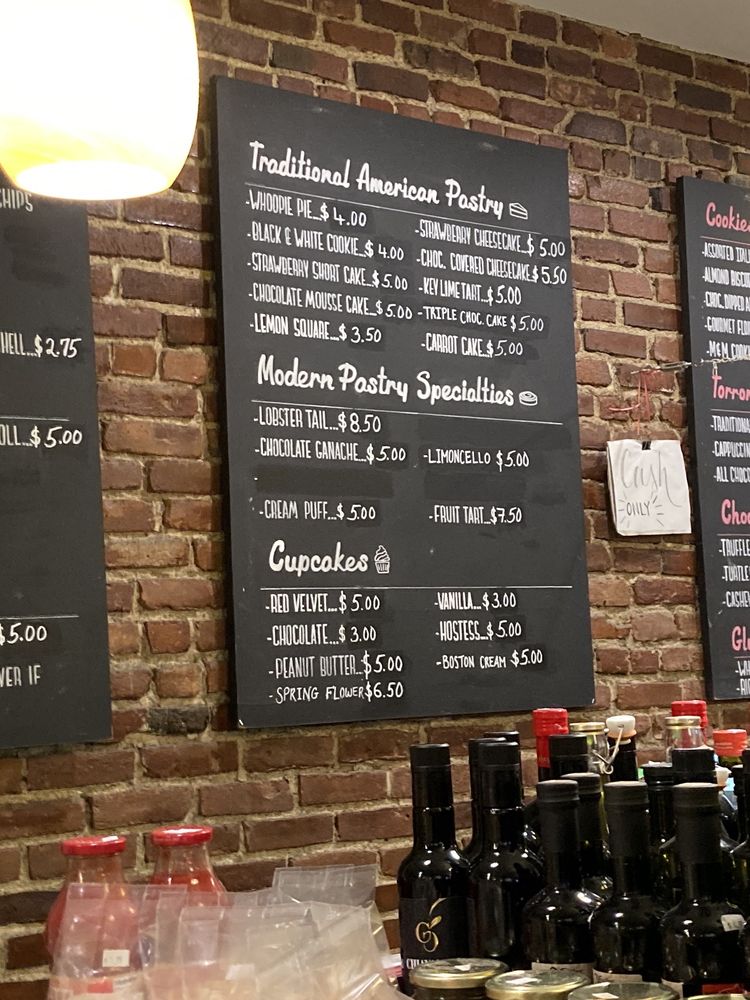 CHIPS
HELL...$2.75
OLL...$5.00
$5.00
VER IF
Traditional American Pastry
-WHOOPIE PIE...$4.00
-BLACK & WHITE COOKIE...$4.00
-STRAWBERRY SHORT CAKE...$5.00
-CHOCOLATE MOUSSE CAKE...$5.00
-LEMON SQUARE...$3.50
-STRAWBERRY CHEESECAKE...$5.00
-CHOC. COVERED CHEESECAKE.$5.50
-KEY LIME TART...$5.00
-TRIPLE CHOC. CAKE $5.00
-CARROT CAKE...$5.00
Modern Pastry Specialties
-LOBSTER TAIL...$8.50
-CHOCOLATE GANACHE...$5.00
-LIMONCELLO $5.00
-CREAM PUFF...$5.00
-FRUIT TART...$7.50
Cupcakes
-RED VELVET...$5.00
-CHOCOLATE...$3.00
-PEANUT BUTTER...$5.00
-SPRING FLOWER $6.50
-VANILLA...$3.00
-HOSTESS...$5.00
-BOSTON CREAM $5.00
Cash
ONLY
Cookie
-ASSORTED ITALI
-ALMOND BISCO
-CHOC. DIPPED A
-GOURMET FLO
-M&M COOKI
Torron
-TRADITIONA
-CAPPUCCIN
-ALL CHOCO
Choc
-TRUFFLE
-TURTLE
-CASHEW
Glu
-WH
-RI